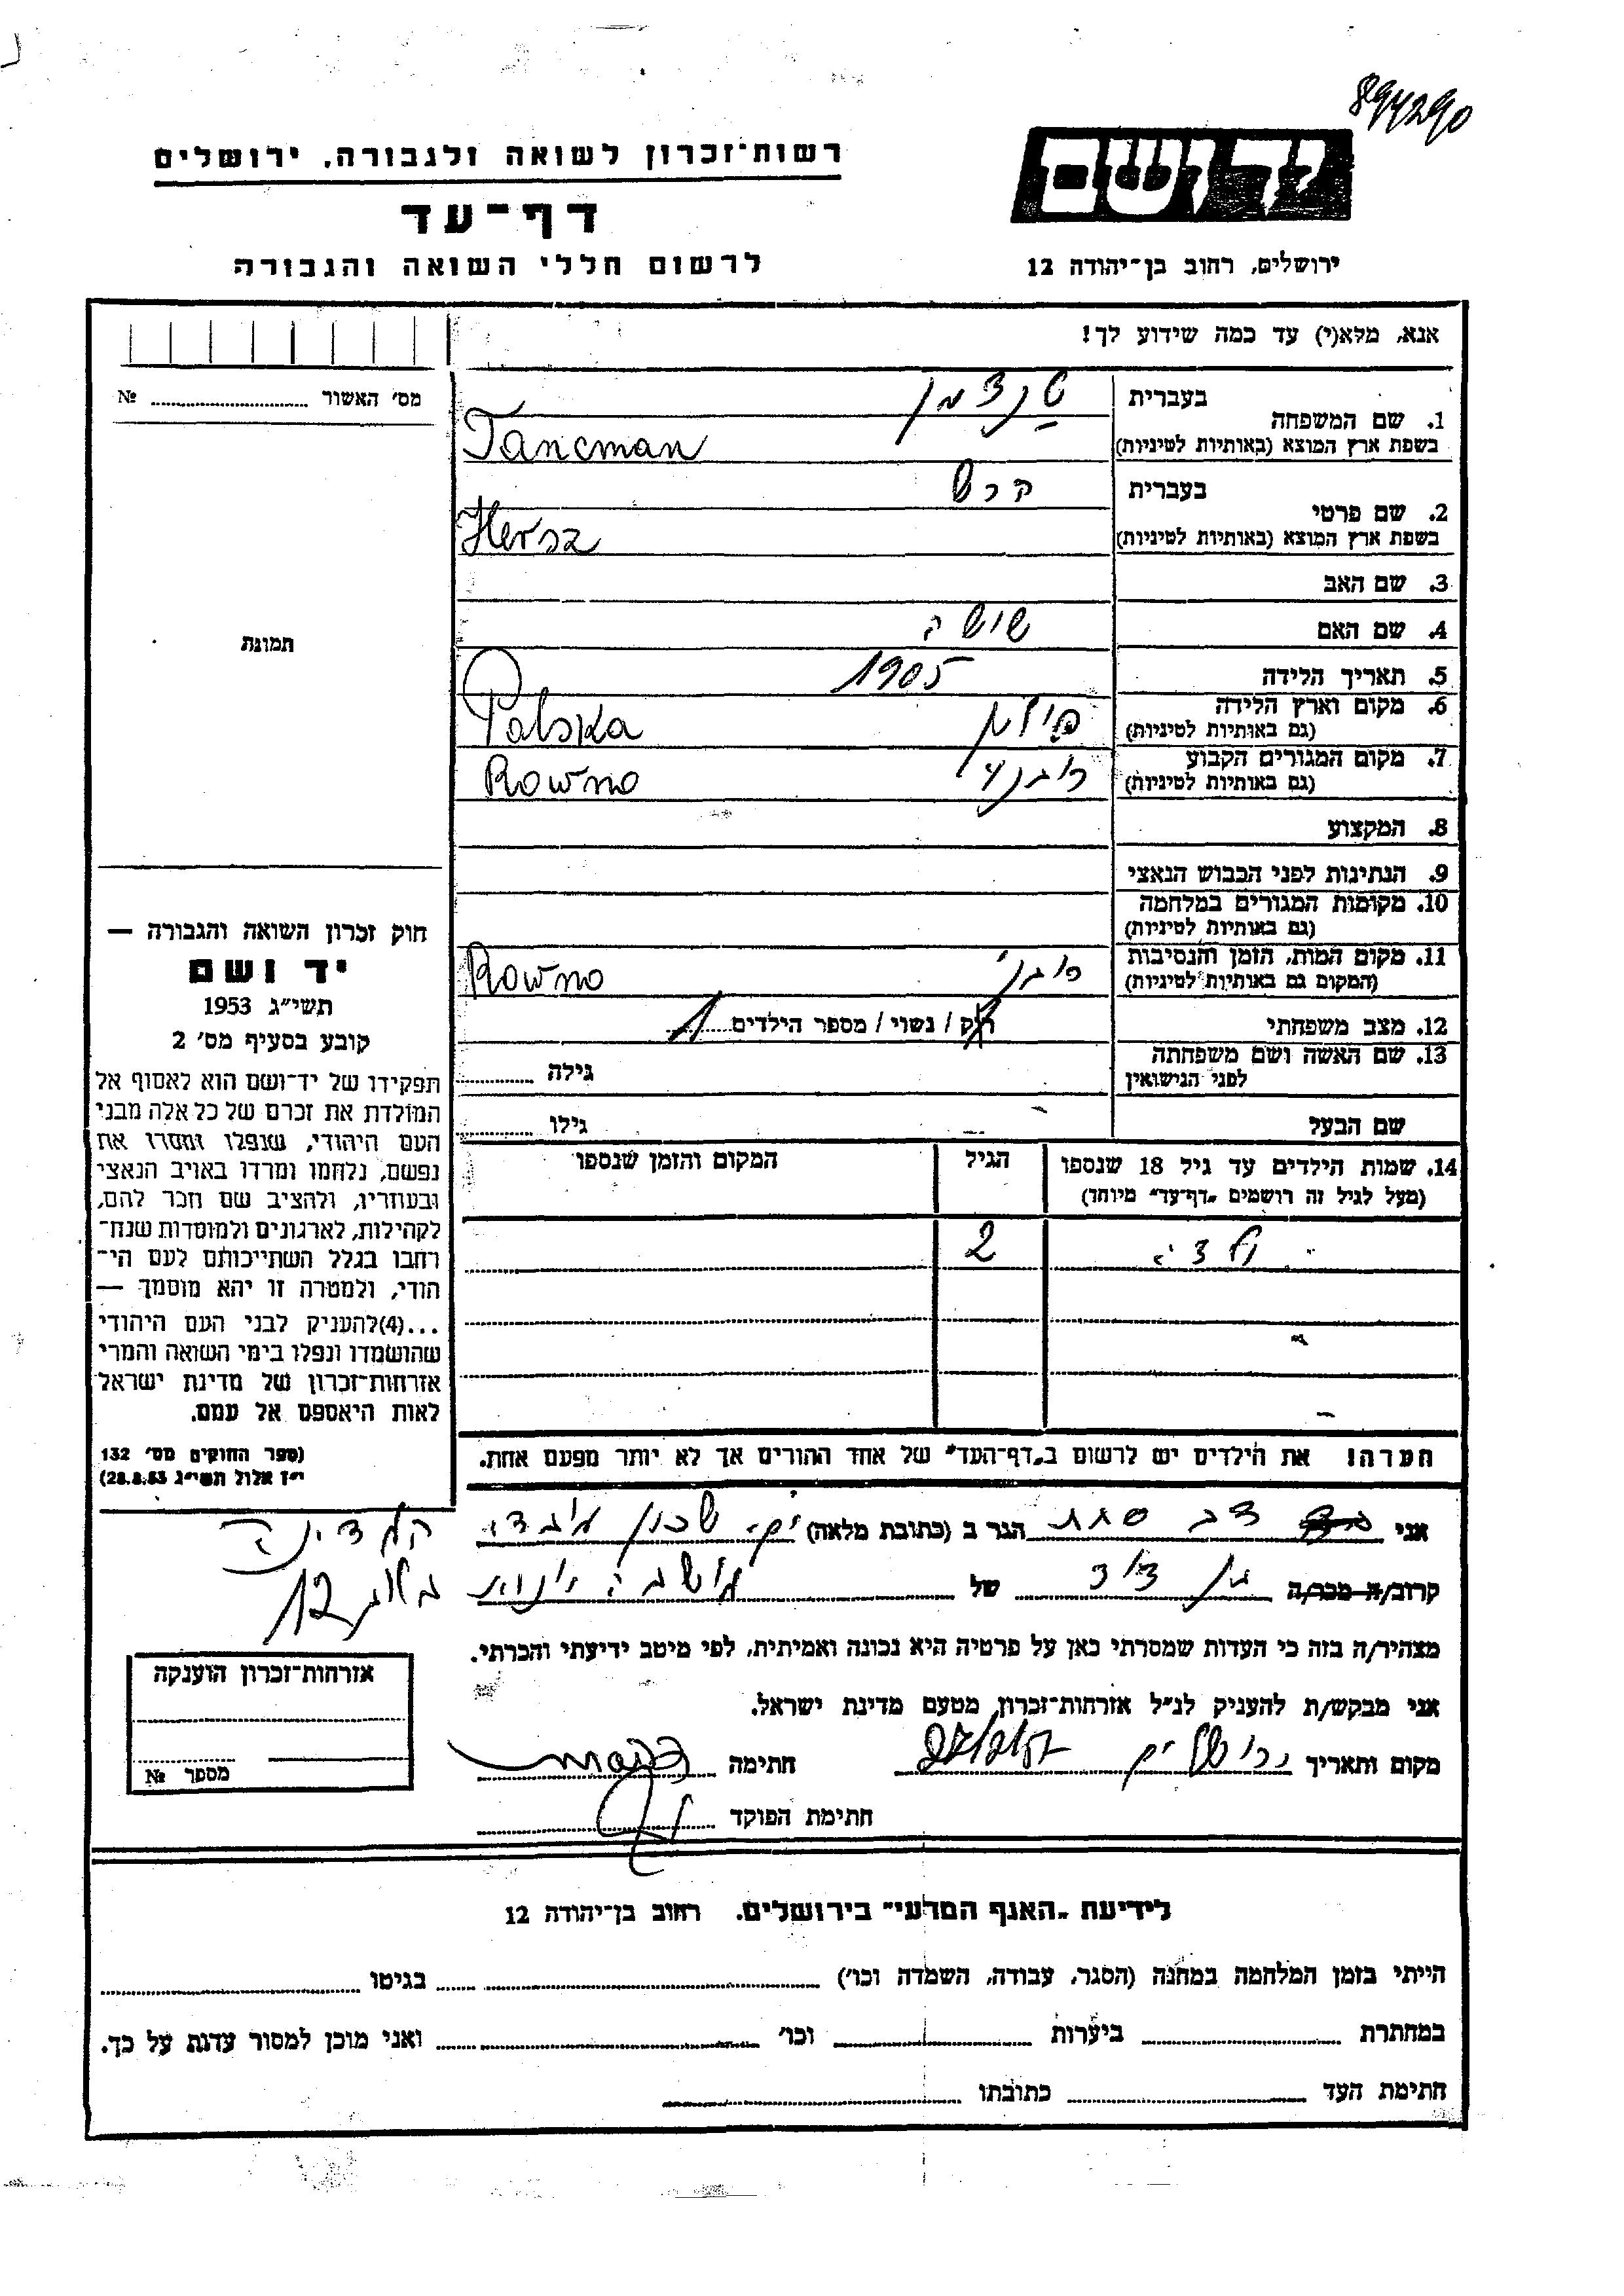 894290
רשות־זכרון לשואה ולגבורה, ירושלים
יד ושם
דף־עד
לרשום חללי השואה והגבורה
ירושלים, רחוב בן־יהודה 12
אנא, מלא(י) עד כמה שידוע לך!
מס׳ האשור № 
1. שם המשפחה
בעברית טנצמן
בשפת ארץ המוצא (באותיות לטיניות) Tancman
2. שם פרטי
בעברית הרש
בשפת ארץ המוצא (באותיות לטיניות) Hersz
3. שם האב
4. שם האם שושה
תמונה
5. תאריך הלידה 1905
6. מקום וארץ הלידה
(גם באותיות לטיניות) פולין Polska
7. מקום המגורים הקבוע
(גם באותיות לטיניות) Rowno
8. המקצוע
9. הנתינות לפני הכבוש הנאצי
10. מקומות המגורים במלחמה
(גם באותיות לטיניות)
11. מקום המות, הזמן והנסיבות
(המקום גם באותיות לטיניות) Rowno
12. מצב משפחתי רוק / נשוי / מספר הילדים 1
13. שם האשה ושם משפחתה
לפני הנישואין גילה
שם הבעל גילו
14. שמות הילדים עד גיל 18 שנספו
(מעל לגיל זה רושמים „דף־עד״ מיוחד)
הגיל
המקום והזמן שנספו
2
הערה! את הילדים יש לרשום ב„דף־העד״ של אחד ההורים אך לא יותר מפעם אחת.
חוק זכרון השואה והגבורה —
יד ושם
תשי״ג 1953
קובע בסעיף מס׳ 2
תפקידו של יד־ושם הוא לאסוף אל
המולדת את זכרם של כל אלה מבני
העם היהודי, שנפלו ומסרו את
נפשם, נלחמו ומרדו באויב הנאצי
ובעוזריו, ולהציב שם וזכר להם,
לקהילות, לארגונים ולמוסדות שנח־
רבו בגלל השתייכותם לעם הי־
הודי, ולמטרה זו יהא מוסמך —
...(4)להעניק לבני העם היהודי
שהושמדו ונפלו בימי השואה והמרי
אזרחות־זכרון של מדינת ישראל
לאות היאספם אל עמם.
(ספר החוקים מס׳ 132
י״ז אלול תשי״ג 28.8.53)
אני דב הגר ב (כתובת מלאה) שכון
12
קרוב/ה מכר/ה בן דוד של
מצהיר/ה בזה כי העדות שמסרתי כאן על פרטיה היא נכונה ואמיתית, לפי מיטב ידיעתי והכרתי.
אני מבקש/ת להעניק לנ״ל אזרחות־זכרון מטעם מדינת ישראל.
מקום ותאריך ירושלים חתימה
חתימת הפוקד
אזרחות־זכרון הוענקה
מספר №
לידיעת „האגף המדעי״ בירושלים, רחוב בן־יהודה 12
הייתי בזמן המלחמה במחנה (הסגר, עבודה, השמדה וכו׳) בגיטו
במחתרת ביערות וכו׳ ואני מוכן למסור עדות על כך.
חתימת העד כתובתו